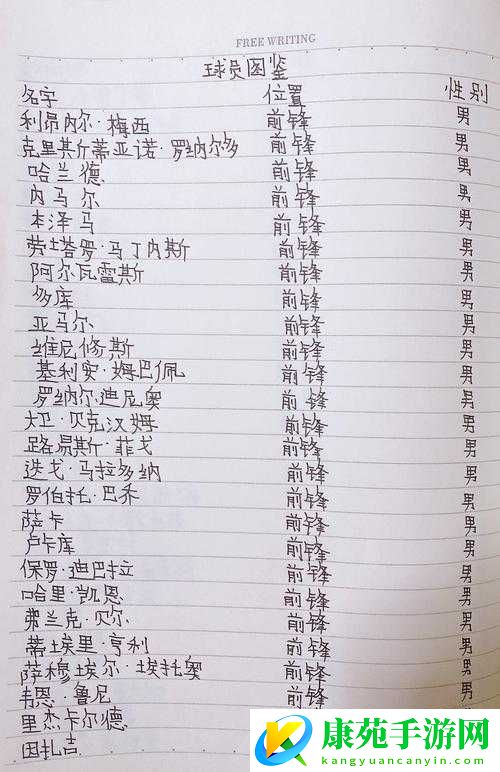 FREE WRITING
球员图鉴
名字 位置 性别
利昂内尔·梅西 前锋 男
克里斯蒂亚诺·罗纳尔多 前锋 男
哈兰德 前锋 男
内马尔 前锋 男
本泽马 前锋 男
劳塔罗·马丁内斯 前锋 男
阿尔瓦雷斯 前锋 男
多库 前锋 男
亚马尔 前锋 男
维尼修斯 前锋 男
基利安·姆巴佩 前锋 男
罗纳尔迪尼奥 前锋 男
大卫·贝克汉姆 前锋 男
路易斯·菲戈 前锋 男
迭戈·马拉多纳 前锋 男
罗伯托·巴乔 前锋 男
萨卡 前锋 男
卢卡库 前锋 男
保罗·迪巴拉 前锋 男
哈里·凯恩 前锋 男
弗兰克·贝尔 前锋 男
蒂埃里·亨利 前锋 男
萨穆埃尔·埃托奥 前锋 男
韦恩·鲁尼 前锋 男
里杰卡尔德 前锋 男
因扎吉
康苑手游网
kangyuancanyin.com